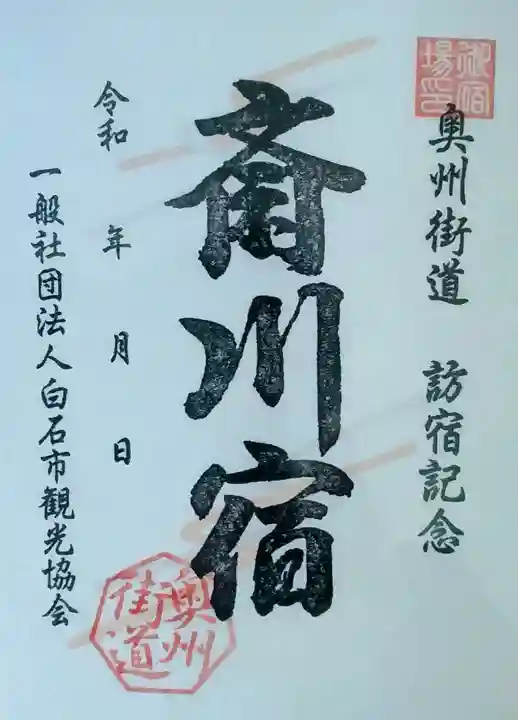 御宿場印
奥州街道 訪宿記念
斎川宿
令和 年 月 日
一般社団法人白石市観光協会
奥州街道